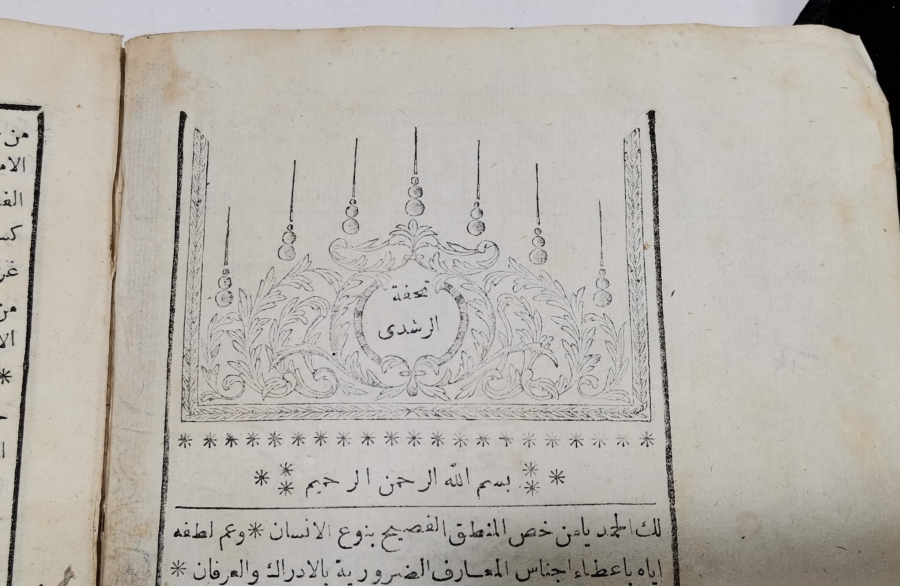 تحفة
الرشدى
بسم الله الرحمن الرحيم
لك الحمد يامن خص المنطق الفصيح بنوع الانسان * وعم لطفه
اياه باعطاء اجناس المعارف الضرورية بالادراك والعرفان *
من